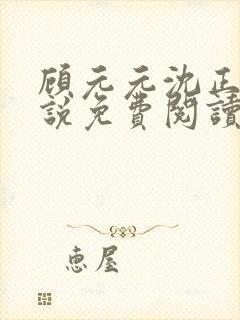 顾元元沈正
說免費閱讀
惠屋